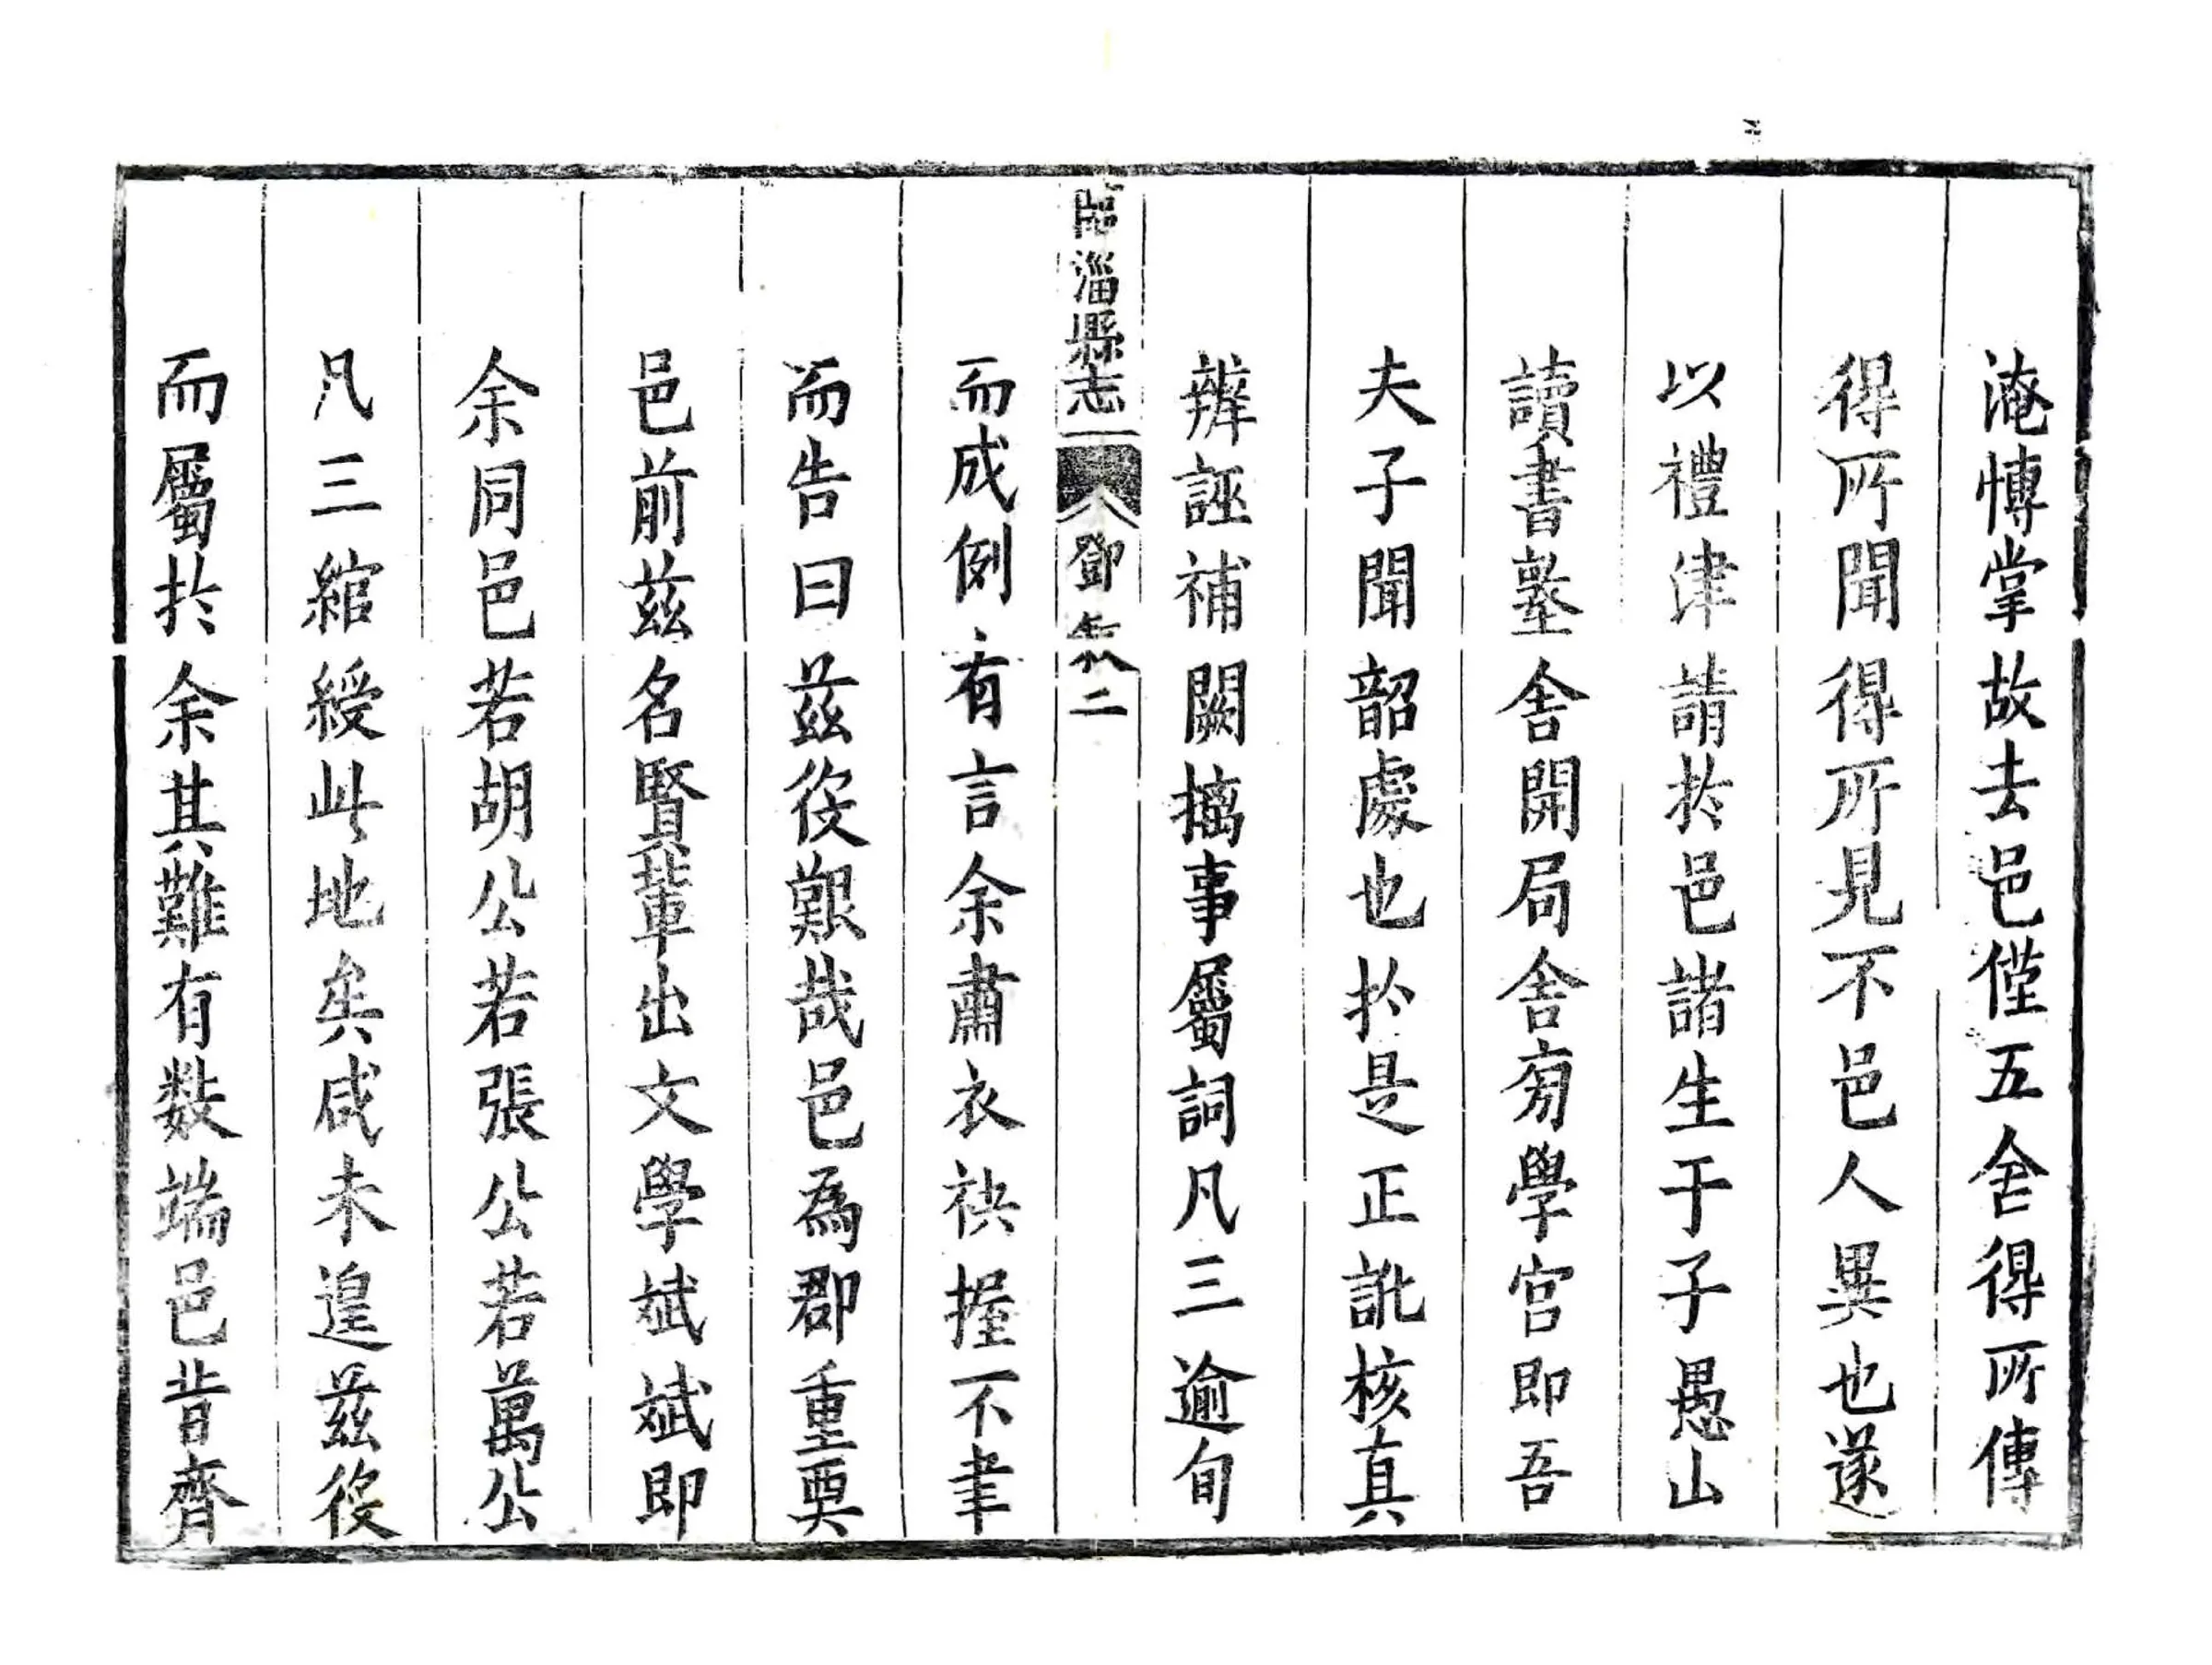 淹博掌故去邑僅五舍得所傳
得所聞得所見不邑人異也遂
以禮津請於邑諸生于子愚山
讀書塾舍開局舍旁學宮即吾
夫子聞韶處也於是正訛核真
辨誣補闕摛事屬詞凡三逾旬
臨淄縣志
鄧 二
而成例有言余肅衣袂握不聿
而告曰茲役艱哉邑為郡重要
邑前茲名賢輩出文學斌斌即
余同邑若胡公若張公若萬公
凡三綰綬此地矣咸未遑茲役
而屬於余其難有數端邑昔齊